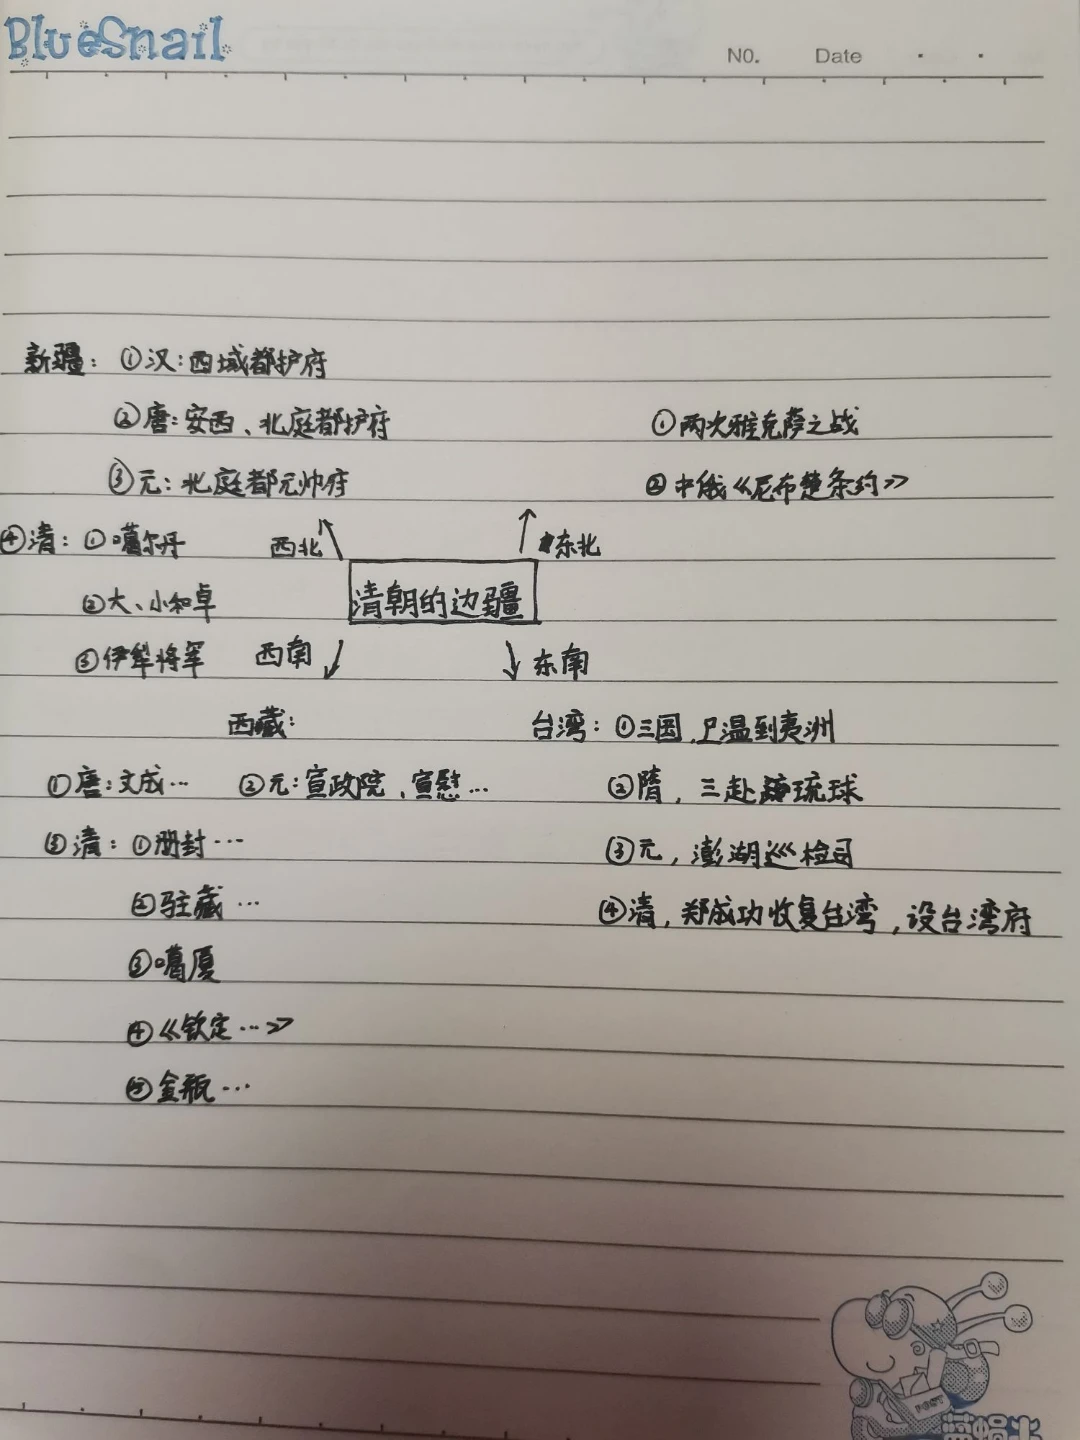 BlueSnail
NO. Date
新疆：①汉：西域都护府
②唐：安西、北庭都护府
①两次雅克萨之战
③元：北庭都元帅府
②中俄《尼布楚条约》
④清：①噶尔丹
西北
东北
②大、小和卓
清朝的边疆
③伊犁将军
西南
东南
西藏：
台湾：①三国，卫温到夷洲
①唐：文成…
②元：宣政院、宣慰…
②隋，三赴琉球
③清：①册封…
③元，澎湖巡检司
②驻藏…
④清，郑成功收复台湾，设台湾府
③噶厦
④《钦定…》
⑤金瓶…
POST